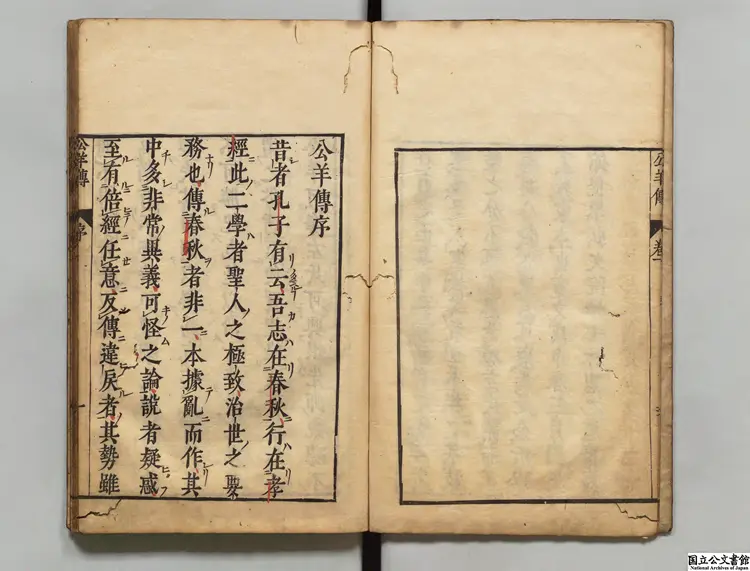 公羊傳 卷
公羊傳序
昔者孔子有云吾志在春秋行在孝
經此二學者聖人之極致治世之要
務也傳春秋者非一本據亂而作其
中多非常異義可怪之論說者疑惑
至有倍經任意反傳違戾者其勢雖
公羊傳 序 一
国立公文書館
National Archives of Japan